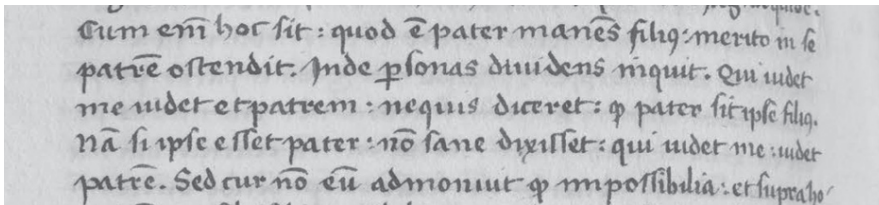 Cum em̄ hoc sit : quod ē pater manēs filiꝰ : merito in se
patrē ostendit. Inde ꝑsonas diuidens inquit. Qui uidet
me uidet et patrem : nequis diceret : ꝙ pater sit ipse filiꝰ.
Nā si ipse esset pater : nō sane dixisset : qui uidet me : uidet
patrē. Sed cur nō eū admonuit ꝙ impossibilia : et supra ho